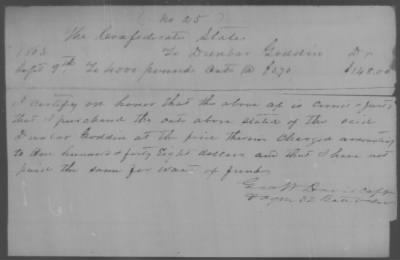 (No 25)
The Confederate States
1863 To Dunbar Goddin Dr
Sept 9th To 4000 pounds Oats @ $3 70 $148.00
I certify on honor that the above a/c is correct & just
that I purchased the oats above stated of the said
Dunbar Goddin at the price therein charged amounting
to One hundred & forty Eight dollars and that I have not
paid the same for want of funds
Geo W